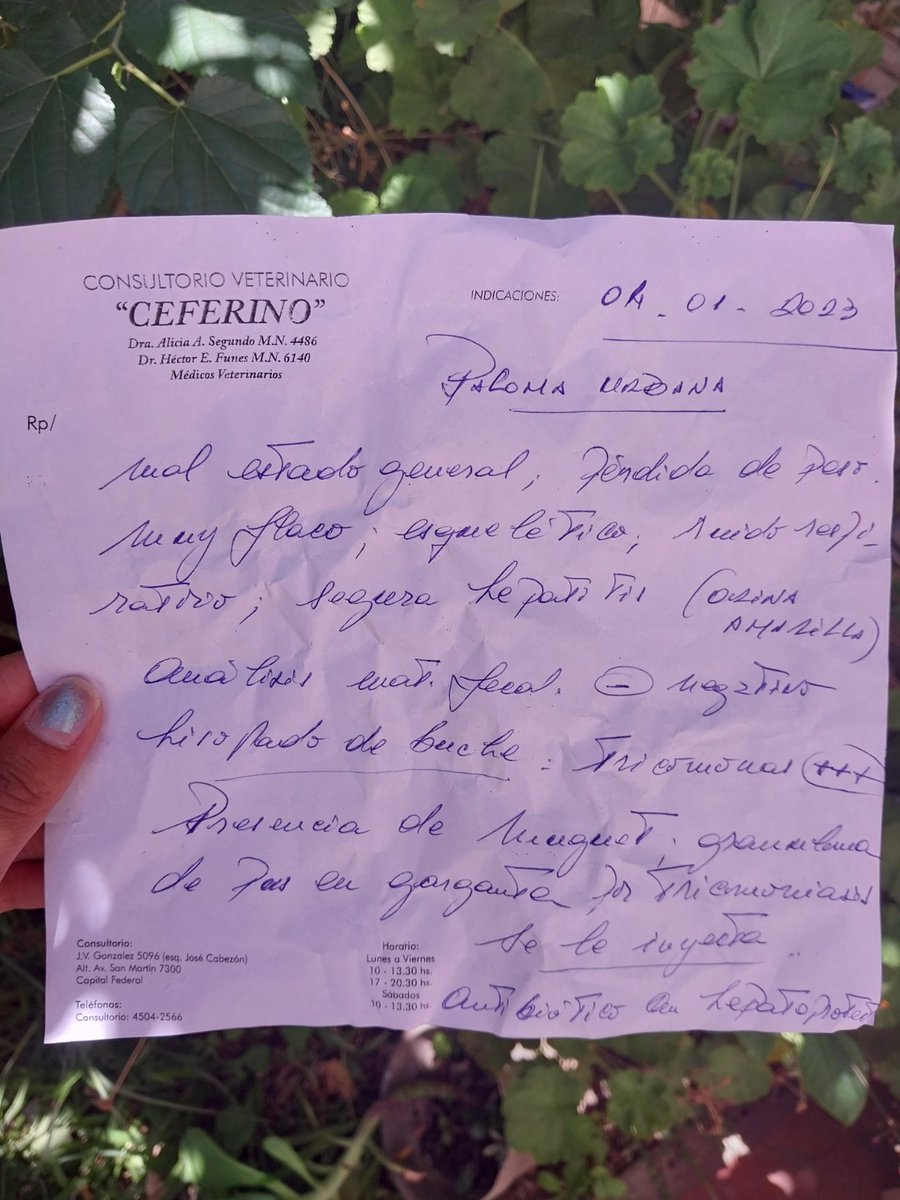 CONSULTORIO VETERINARIO
"CEFERINO"
Dra. Alicia A. Segundo M.N. 4486
Dr. Héctor E. Funes M.N. 6140
Médicos Veterinarios
INDICACIONES: 04 - 01 - 2023
PALOMA URBANA
Rp/
mal estado general; Pérdida de peso.
muy flaco; esquelético; ruido respi-
ratorio; segura hepatitis (ORINA
AMARILLA)
Análisis mat. fecal. (-) negativo
hisopado de buche: Tricomonas (+++)
Presencia de muguet; granuloma
de pus en garganta por tricomoniasis
Se le inyecta
antibiótico hepatoprotect
Consultorio:
J.V. Gonzalez 5096 (esq. José Cabezón)
Alt. Av. San Martín 7300
Capital Federal
Teléfonos:
Consultorio: 4504-2566
Horario:
Lunes a Viernes
10 - 13.30 hs.
17 - 20.30 hs.
Sábados
10 - 13.30 hs.